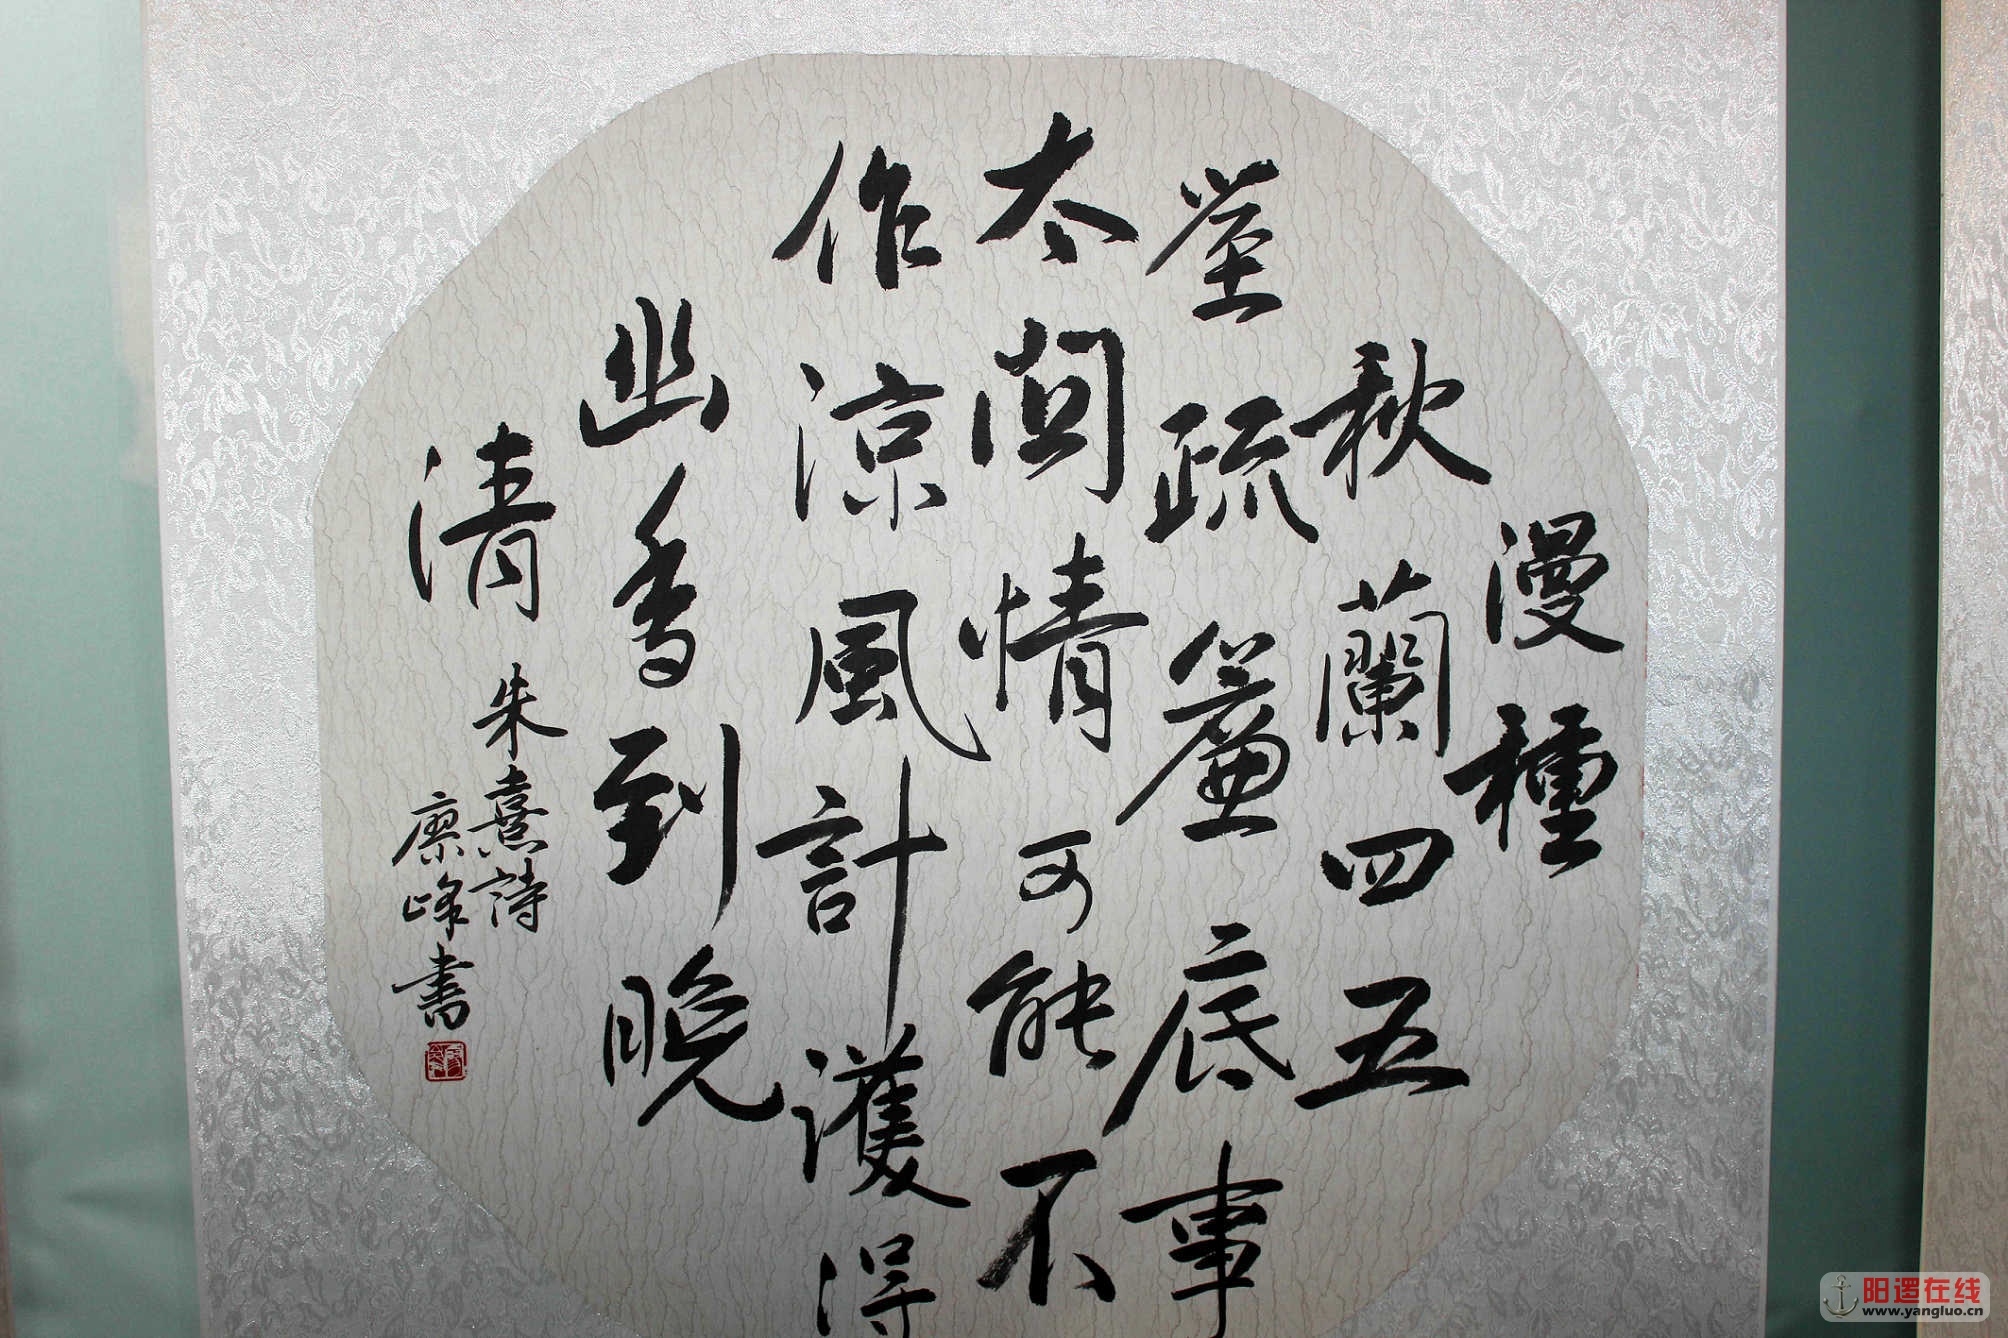 漫種
秋蘭四五
莖疏簾底事
太關情可能不
作涼風計護得
幽香到晚
清
朱熹詩
峰書
阳逻在线
www.yangluo.cn